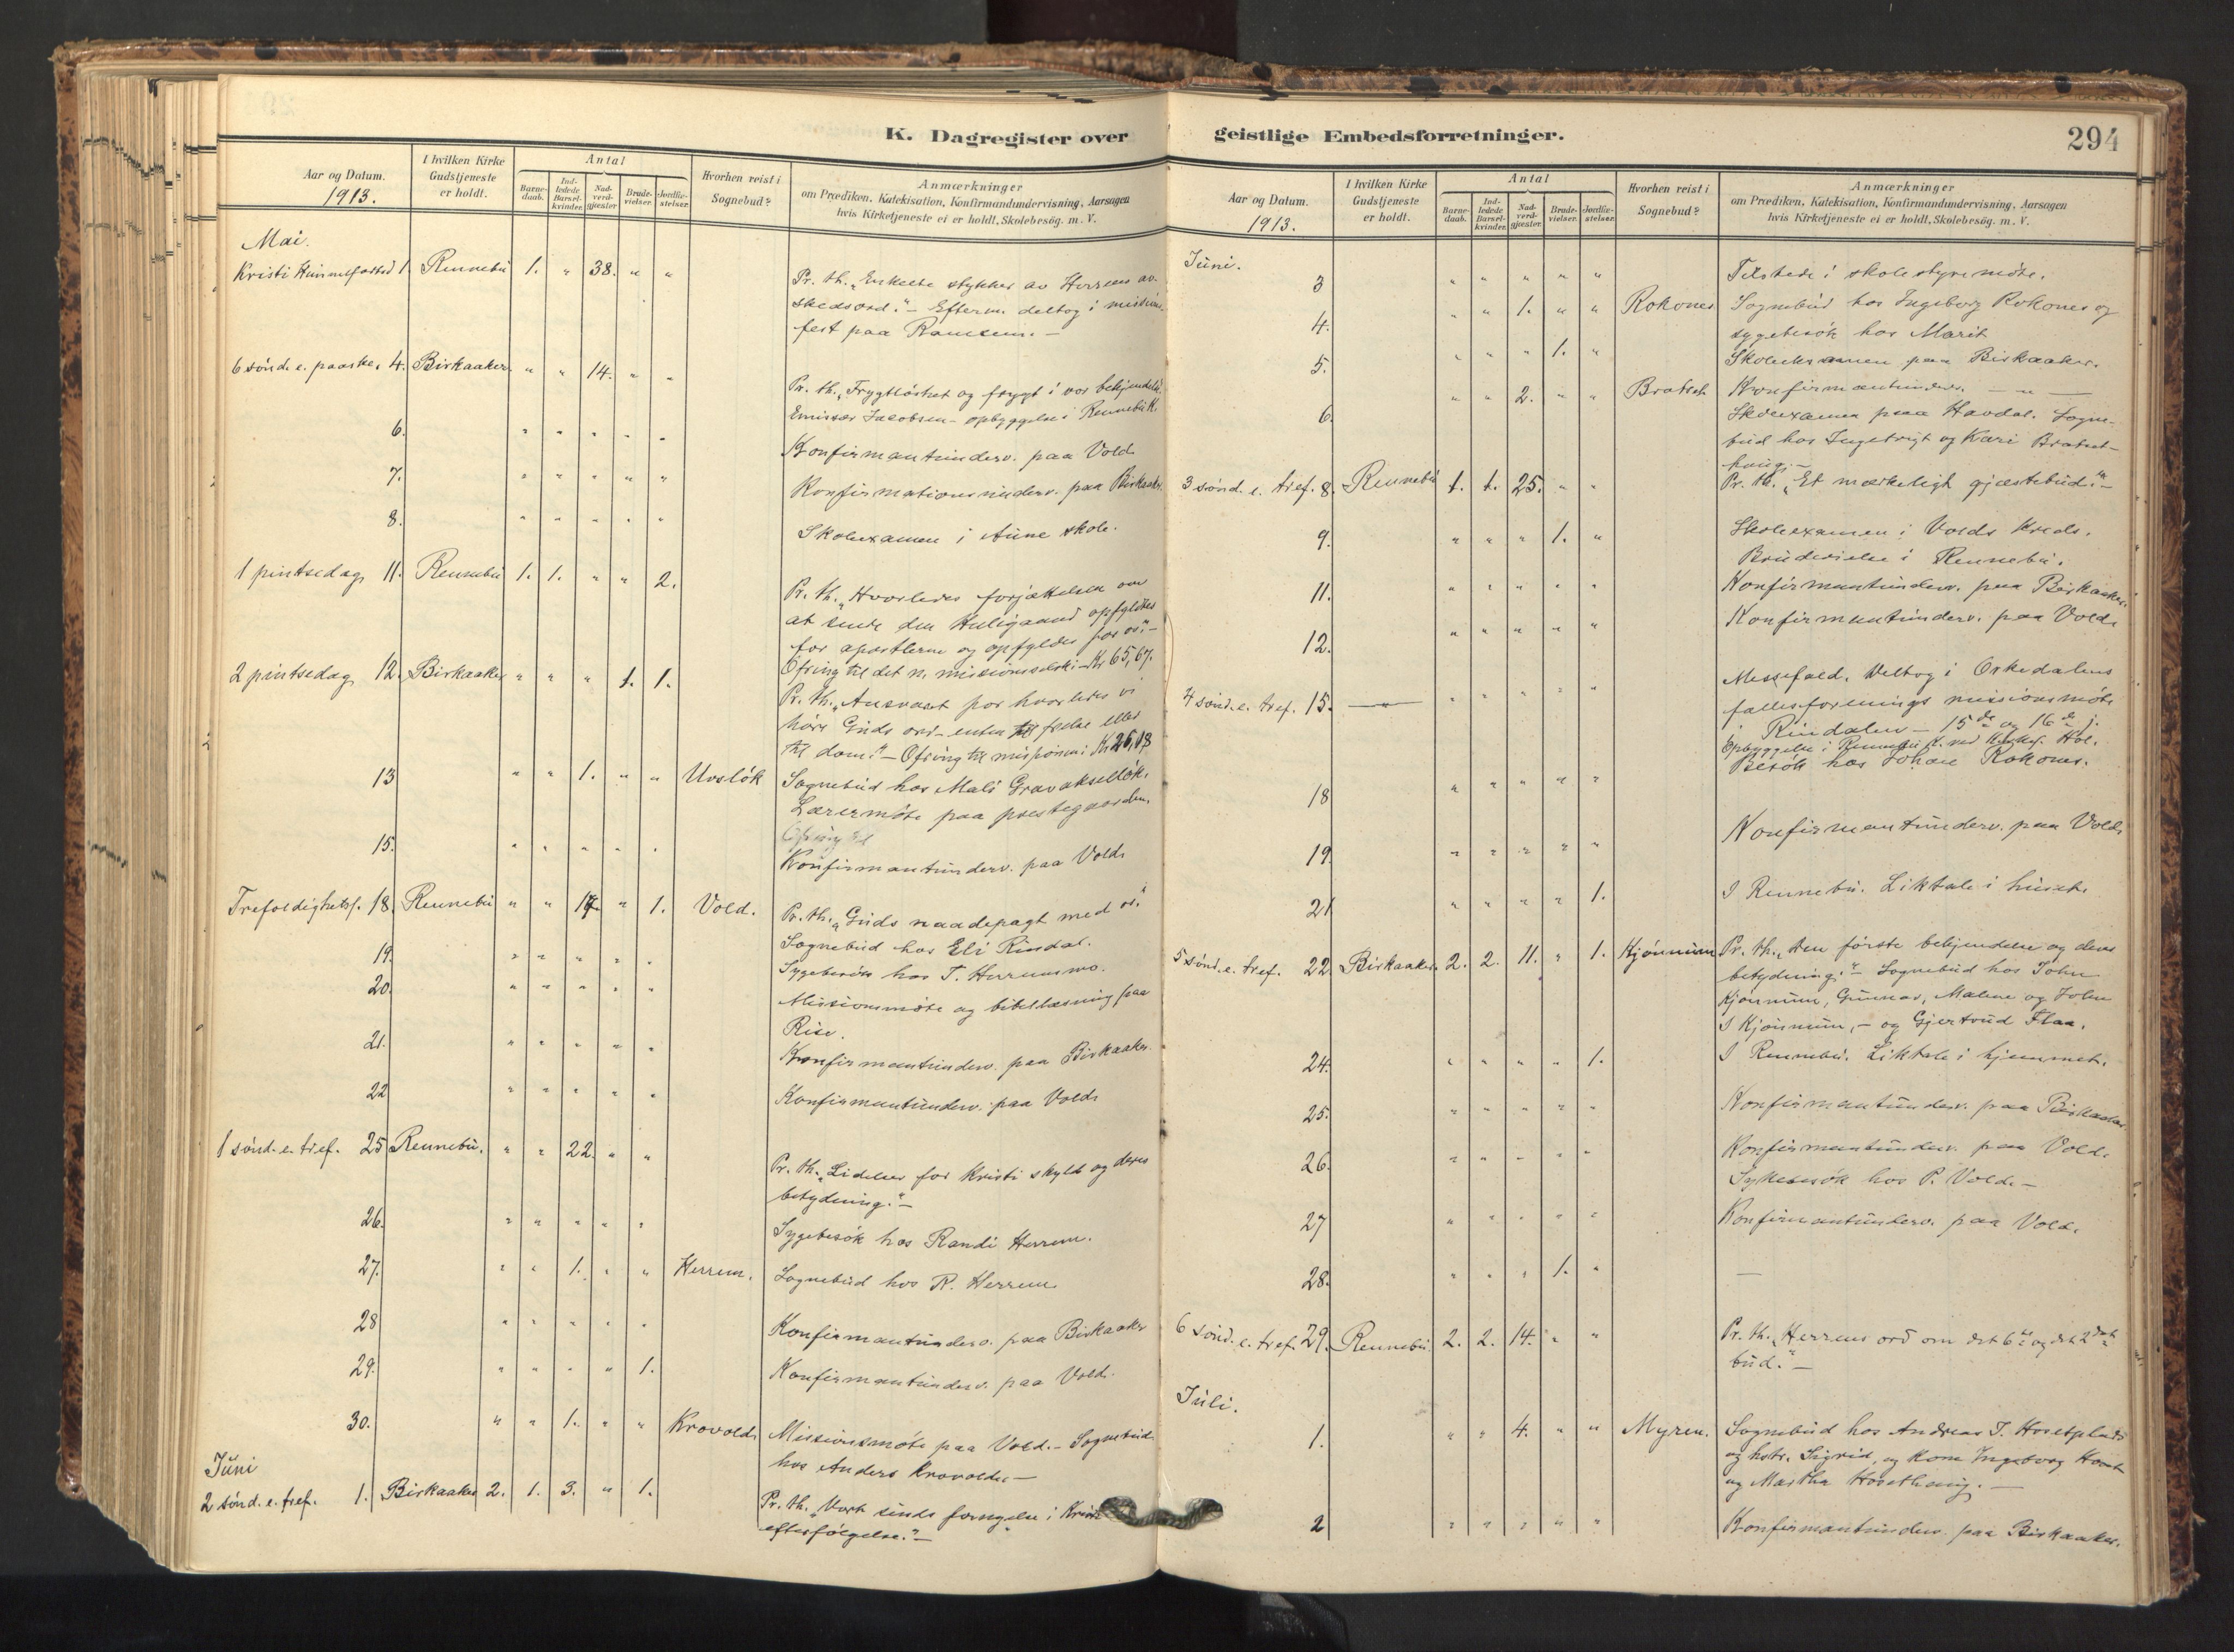 K. Dagregister over
Aar og Datum.
1913.
I hvilken Kirke
Gudstjeneste
er holdt.
Antal
Barne-
daab.
Ind-
ledede
Barsel-
kvinder.
Nad-
verd-
gjæster
Brude-
vielser.
Jordfæ-
stelser.
Hvorhen reist i
Sognebud?
Anmærkninger
om Prædiken, Katekisation, Konfirmandundervisning, Aarsagen
hvis Kirketjeneste ei er holdt, Skolebesøg. m. V.
Mai.
Kristi Himmelfartsd 1. Rennebu 1. " 38. " " Pr. th. "Enkelte stykker av Herrens av-
skedsord." - Efterm. deltog i missions-
fest paa Ramsem. -
6 sönd. e. paaske. 4. Birkaaker " " 14. " " Pr. th. "Frygtlöshet og frygt i vor bekjendelse
Emissær Jacobsen - opbyggelse i Rennebu K.
6. " " " " " Konfirmantunderv. paa Vold.
7. " " " " " Konfirmationsunderv. paa Birkaaker.
8. " " " " " Skoleexamen i Aune skole.
1 pintsedag 11. Rennebu 1. 1. " " 2. Pr. th. "Hvorledes forjættelsen om
at sende den Helligaand opfyldtes
for apostlerne og opfyldes for os." -
Ofring til det n. missionsselsk. - Kr 65,67.
2 pintsedag 12. Birkaaker " " " 1. 1. Pr. th. "Ansvaret for hvorledes vi
höre Guds ord - enten til frelse eller
til dom." - Ofring til missionen: Kr 26,18
13 " " 1. " " Uvslök Sognebud hos Mali Gravakslök.
Lærermöte paa prestegaarden.
Ofring til
15. " " " " " Konfirmantunderv. paa Vold.
Trefoldighetsf. 18. Rennebu " " 17. " 1. Vold. Pr. th. "Guds naadepagt med os."
Sognebud hos Eli Rindal.
19. " " " " " Sygebesök hos T. Herremsmo.
20. " " " " " Missionsmöte og bibellæsning paa
Rise.
21. " " " " " Konfirmantunderv. paa Birkaaker.
22 " " " " " Konfirmantunderv. paa Vold.
1 sönd. e. tref. 25 Rennebu. " " 22. " " Pr. th. "Lidelser for Kristi skyld og deres
betydning." -
26. " " " " " Sygebesök hos Randi Herrem.
27. " " 1. " " Herrem. Sognebud hos R. Herrem
28 " " " " " Konfirmantunderv. paa Birkaaker
29. " " " " 1. Konfirmantunderv. paa Vold.
30. " " 1. " " Krovold. Missionsmöte paa Vold. - Sognebud
hos Anders Krovold. -
Juni
2 sönd. e. tref. 1. Birkaaker 2. 1. 3. " 1. Pr. th. "Vort sinds fornyelse i Kristi
efterfölgelse." -
geistlige Embedsforretninger.
294
Aar og Datum.
1913.
I hvilken Kirke
Gudstjeneste
er holdt.
Antal
Barne-
daab.
Ind-
ledede
Barsel-
kvinder.
Nad-
verd-
gjæster.
Brude-
vielser.
Jordfæ-
stelser.
Hvorhen reist i
Sognebud?
Anmærkninger
om Prædiken, Katekisation, Konfirmandundervisning, Aarsagen
hvis Kirketjeneste ei er holdt, Skolebesøg. m. V.
Juni.
3 " " " " " Tilstede i skolestyremöte.
4. " " 1. " " Rokones Sognebud hos Ingeborg Rokones og
sygebesök hos Marit
5. " " " 1. " Skoleexamen paa Birkaaker.
Konfirmantunderv. - " -
6. " " 2. " " Bratset Skoleexamen paa Havdal. Sogne-
bud hos Ingebrigt og Kari Bratset-
haug. -
3 sönd. e. tref. 8. Rennebu 1. 1. 25. " " Pr. th. "Et merkeligt gjæstebud." -
9. " " " 1. " Skoleexamen i Volds Kreds.
Brudevielse i Rennebu.
11. " " " " " Konfirmantunderv. paa Birkaaker.
12. " " " " " Konfirmantunderv. paa Vold.
4 sönd. e. tref. 15. — " " " " " Messefald. Deltog i Orkedalens
fællesforenings missionsmöte
i Rindalen - 15de og 16de j.
Opbyggelse i Rennebu K. ved Hol.
18 " " " " " Besök hos Johan Rokones.
19. " " " " " Konfirmantunderv. paa Vold.
21 " " " " 1. I Rennebu. Liktale i huset.
5 sönd. e. tref. 22 Birkaaker. 2. 2. 11. " 1. Kjönnum Pr. th. "Den förste bekjendelse og dens
betydning." - Sognebud hos John
Kjönnum, Gunnar, Malene og John
I Kjönnum, - og Gjertrud Flaa.
24. " " " " 1. I Rennebu. Liktale i hjemmet.
25. " " " " " Konfirmantunderv. paa Birkaaker
26. " " " " " Konfirmantunderv. paa Vold.
Sykebesök hos P. Vold. -
27 " " " " " Konfirmantunderv. paa Vold.
28. " " " 1. " —
6 sönd. e. tref. 29. Rennebu. 2. 2. 14. " " Pr. th. "Herrens ord om det 6te og det 2det
bud." -
Juli.
1. " " 4. " " Myren. Sognebud hos Andreas T. Hosetplads
og hstr. Sigrid, og Kona Ingeborg Hoset
og Martha Hosethaug. -
2 " " " " " Konfirmantunderv. paa Birkaaker.